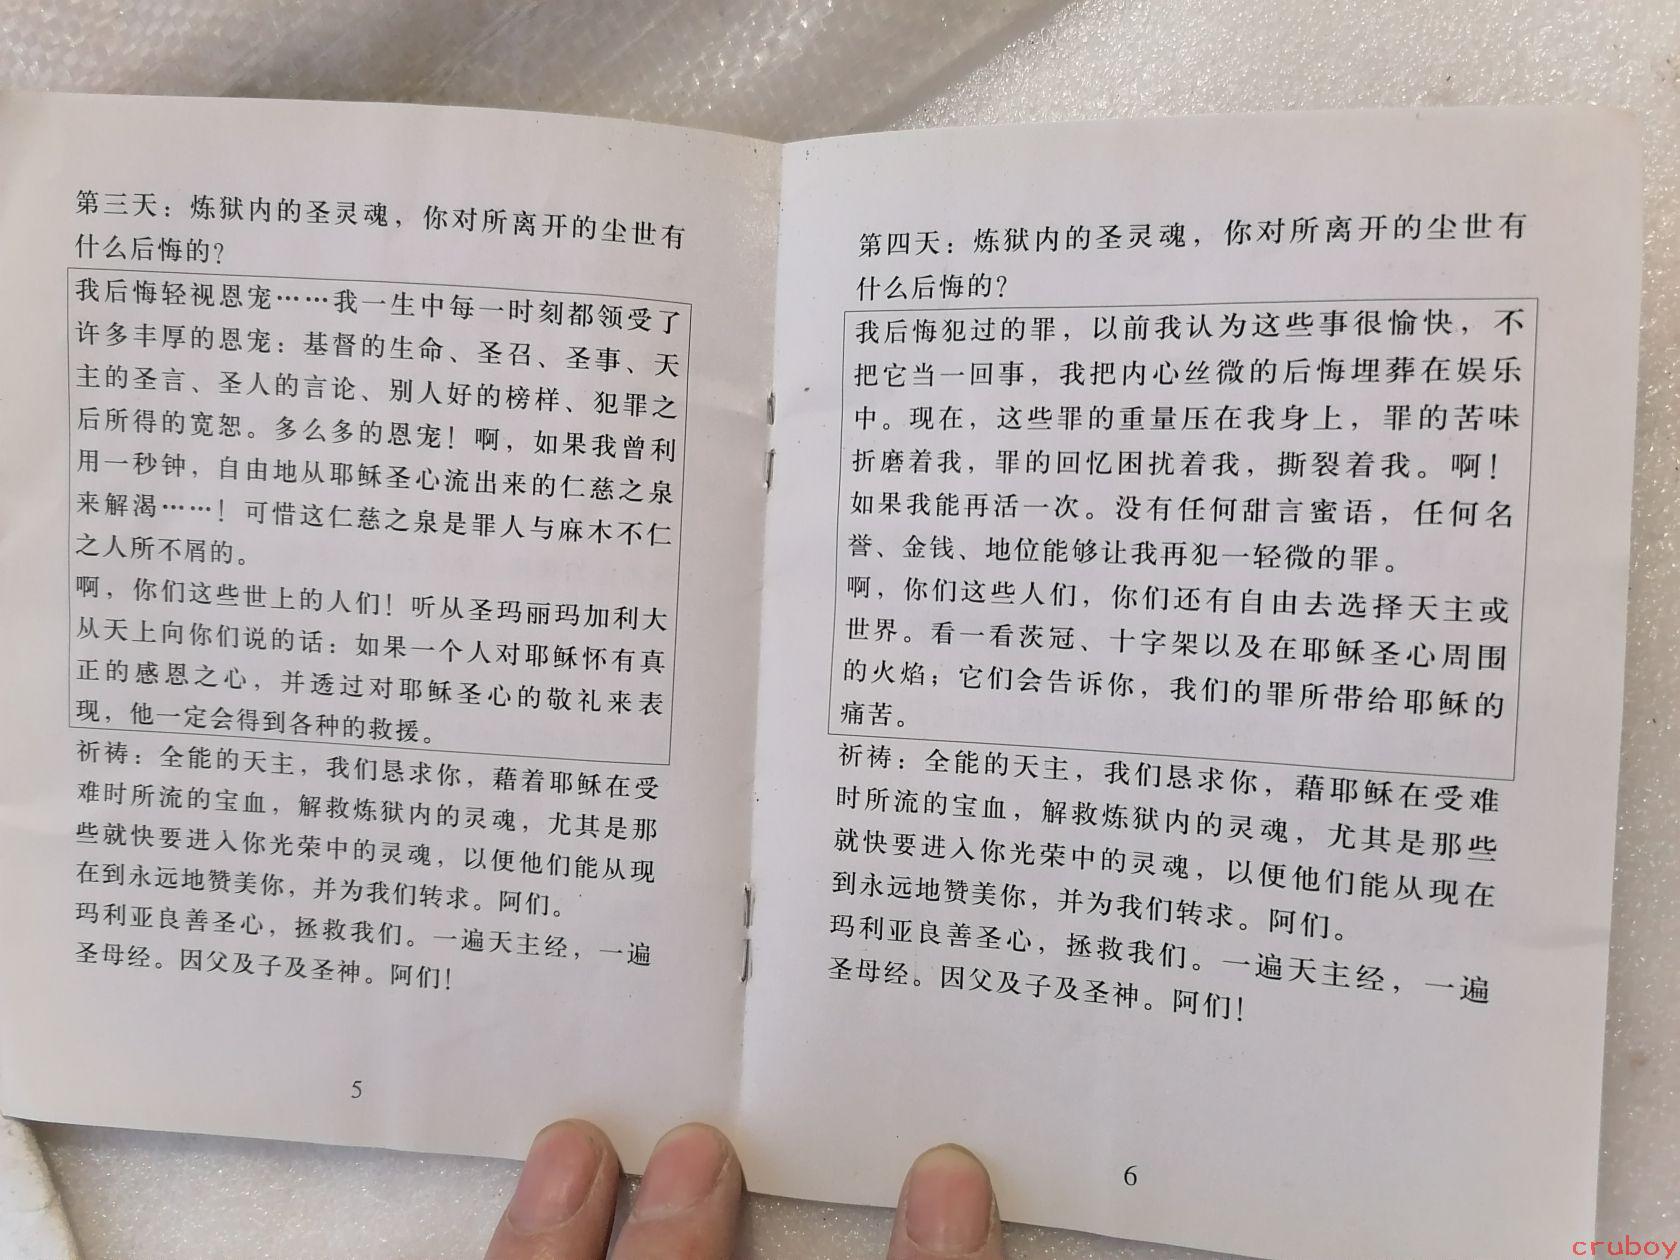 第三天：炼狱内的圣灵魂，你对所离开的尘世有
什么后悔的？
我后悔轻视恩宠……我一生中每一时刻都领受了
许多丰厚的恩宠：基督的生命、圣召、圣事、天
主的圣言、圣人的言论、别人好的榜样、犯罪之
后所得的宽恕。多么多的恩宠！啊，如果我曾利
用一秒钟，自由地从耶稣圣心流出来的仁慈之泉
来解渴……！可惜这仁慈之泉是罪人与麻木不仁
之人所不屑的。
啊，你们这些世上的人们！听从圣玛丽玛加利大
从天上向你们说的话：如果一个人对耶稣怀有真
正的感恩之心，并透过对耶稣圣心的敬礼来表
现，他一定会得到各种的救援。
祈祷：全能的天主，我们恳求你，藉着耶稣在受
难时所流的宝血，解救炼狱内的灵魂，尤其是那
些就快要进入你光荣中的灵魂，以便他们能从现
在到永远地赞美你，并为我们转求。阿们。
玛利亚良善圣心，拯救我们。一遍天主经，一遍
圣母经。因父及子及圣神。阿们！
5
第四天：炼狱内的圣灵魂，你对所离开的尘世有
什么后悔的？
我后悔犯过的罪，以前我认为这些事很愉快，不
把它当一回事，我把内心丝微的后悔埋葬在娱乐
中。现在，这些罪的重量压在我身上，罪的苦味
折磨着我，罪的回忆困扰着我，撕裂着我。啊！
如果我能再活一次。没有任何甜言蜜语，任何名
誉、金钱、地位能够让我再犯一轻微的罪。
啊，你们这些人们，你们还有自由去选择天主或
世界。看一看茨冠、十字架以及在耶稣圣心周围
的火焰；它们会告诉你，我们的罪所带给耶稣的
痛苦。
祈祷：全能的天主，我们恳求你，藉耶稣在受难
时所流的宝血，解救炼狱内的灵魂，尤其是那些
就快要进入你光荣中的灵魂，以便他们能从现在
到永远地赞美你，并为我们转求。阿们。
玛利亚良善圣心，拯救我们。一遍天主经，一遍
圣母经。因父及子及圣神。阿们！
6
cruboy